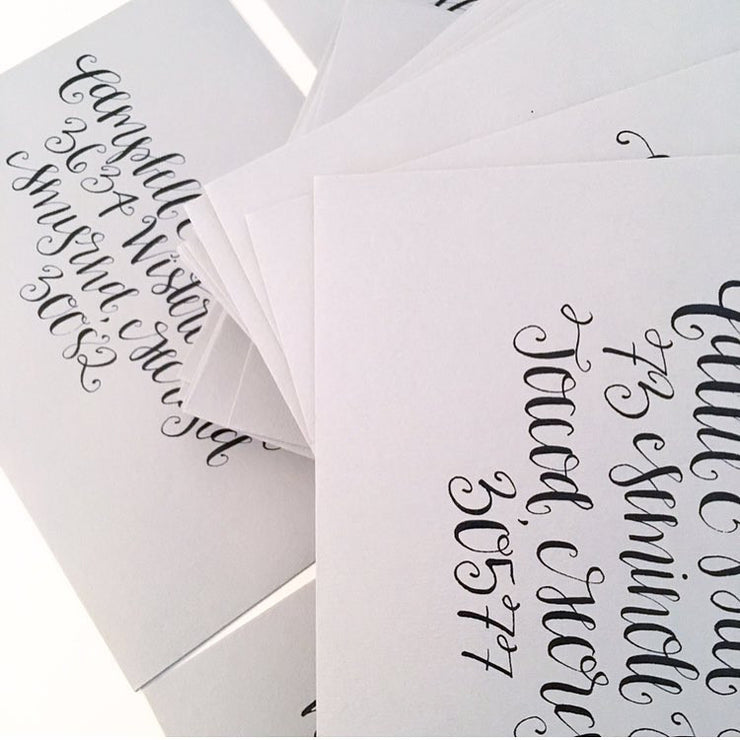 Campbell
3634 Wister
Smyrna, Georgia
30082
73 Seminole
Toccoa, Georg
30577